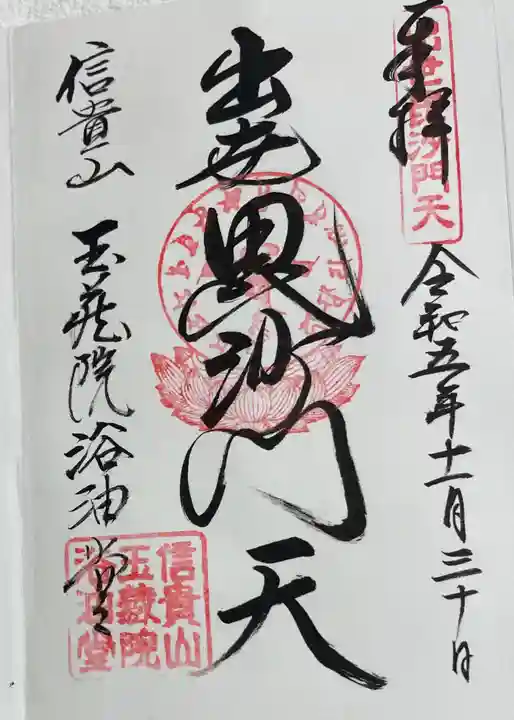 奉拝
令和五年十一月三十日
出世毘沙門天
信貴山 玉蔵院浴油堂
出世毘沙門天
信貴山
玉蔵院
浴油堂